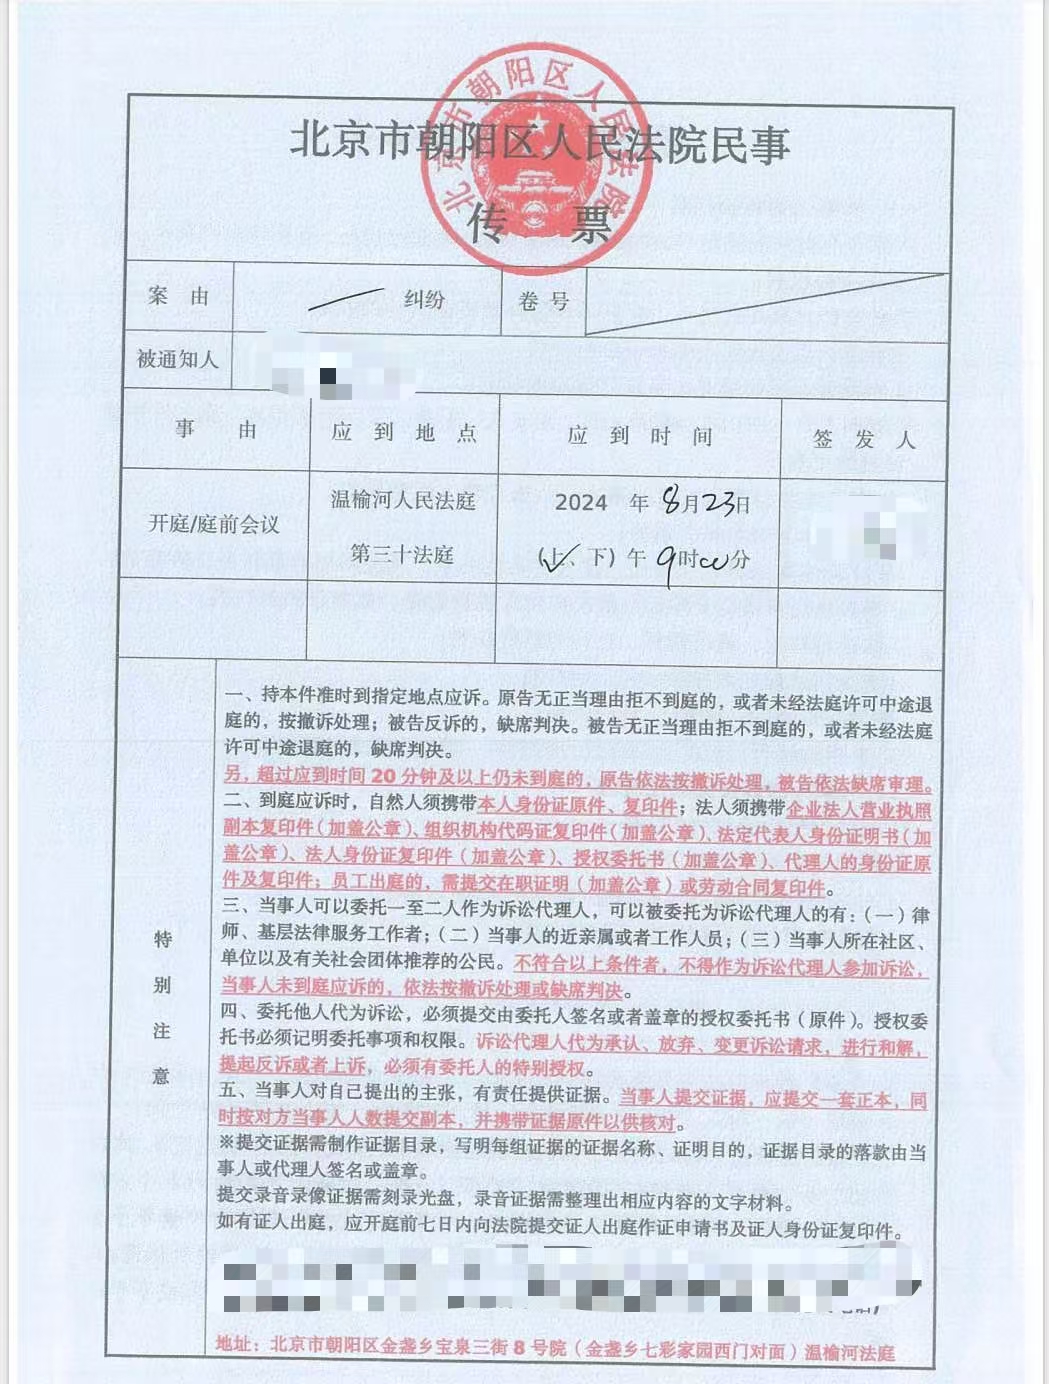 北京市朝阳区人民法院
北京市朝阳区人民法院民事
传 票
案 由 纠纷 卷 号
被通知人
事 由 应 到 地 点 应 到 时 间 签 发 人
开庭/庭前会议 温榆河人民法庭 2024 年 8月23日
第三十法庭 (上、下) 午 9时00分
特别注意
一、持本件准时到指定地点应诉。原告无正当理由拒不到庭的，或者未经法庭许可中途退
庭的，按撤诉处理；被告反诉的，缺席判决。被告无正当理由拒不到庭的，或者未经法庭
许可中途退庭的，缺席判决。
另，超过应到时间 20 分钟及以上仍未到庭的，原告依法按撤诉处理，被告依法缺席审理。
二、到庭应诉时，自然人须携带本人身份证原件、复印件；法人须携带企业法人营业执照
副本复印件（加盖公章）、组织机构代码证复印件（加盖公章）、法定代表人身份证明书（加
盖公章）、法人身份证复印件（加盖公章）、授权委托书（加盖公章）、代理人的身份证原
件及复印件；员工出庭的，需提交在职证明（加盖公章）或劳动合同复印件。
三、当事人可以委托一至二人作为诉讼代理人，可以被委托为诉讼代理人的有：（一）律
师、基层法律服务工作者；（二）当事人的近亲属或者工作人员；（三）当事人所在社区、
单位以及有关社会团体推荐的公民。不符合以上条件者，不得作为诉讼代理人参加诉讼，
当事人未到庭应诉的，依法按撤诉处理或缺席判决。
四、委托他人代为诉讼，必须提交由委托人签名或者盖章的授权委托书（原件）。授权委
托书必须记明委托事项和权限。诉讼代理人代为承认、放弃、变更诉讼请求，进行和解，
提起反诉或者上诉，必须有委托人的特别授权。
五、当事人对自己提出的主张，有责任提供证据。当事人提交证据，应提交一套正本，同
时按对方当事人人数提交副本，并携带证据原件以供核对。
※提交证据需制作证据目录，写明每组证据的证据名称、证明目的，证据目录的落款由当
事人或代理人签名或盖章。
提交录音录像证据需刻录光盘，录音证据需整理出相应内容的文字材料。
如有证人出庭，应开庭前七日内向法院提交证人出庭作证申请书及证人身份证复印件。
地址：北京市朝阳区金盏乡宝泉三街 8 号院（金盏乡七彩家园西门对面）温榆河法庭